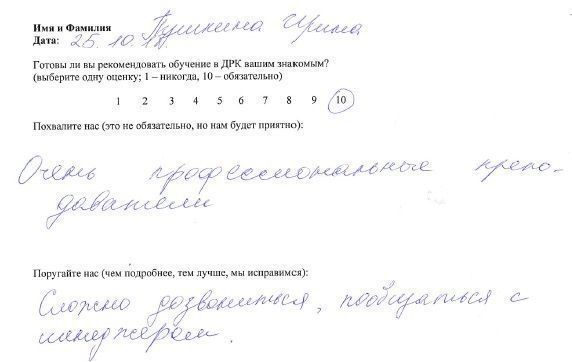 Имя и Фамилия Пушкина Ирина
Дата: 25.10.17
Готовы ли вы рекомендовать обучение в ДРК вашим знакомым?
(выберите одну оценку; 1 – никогда, 10 – обязательно)
1 2 3 4 5 6 7 8 9 10
Похвалите нас (это не обязательно, но нам будет приятно):
Очень профессиональные препо-
даватели
Поругайте нас (чем подробнее, тем лучше, мы исправимся):
Сложно дозвониться, пообщаться с
менеджером.